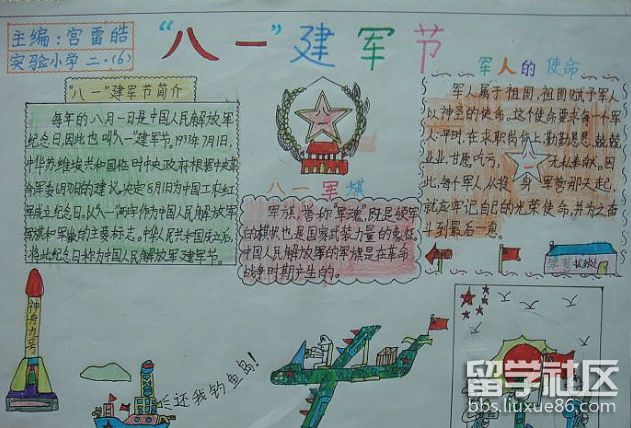 主编:宫雷皓
实验小学 二.(6)
“八一”建军节
“八一”建军节简介
每年的八月一日是中国人民解放军
纪念日,因此也叫“八一”建军节。1933年7月1日,
中华苏维埃共和国临时中央政府根据中央革
命军委6月30日的建议,决定8月1日为中国工农红
军成立纪念日,以“八一”两字作为中国人民解放军
军旗和军徽的主要标志。中华人民共和国成立后,
将此纪念日称为中国人民解放军建军节。
八一军旗
军旗,誉称“军魂”,既是领军
的旗帜,也是国家武装力量的象征。
中国人民解放军的军旗是在革命
战争时期产生的。
军人的使命
军人属于祖国,祖国赋予军人
以神圣的使命。这个使命要求每一个军
人,平时,在求职岗位上勤勤恳恳,兢兢
业业,甘愿吃亏,无私奉献。因
此,每个军人,从投身军营那天起,
就应牢记自己的光荣使命,并为之奋
斗到最后一息
神舟九号
还我钓鱼岛!
留学社区
bbs.liuxue86.com